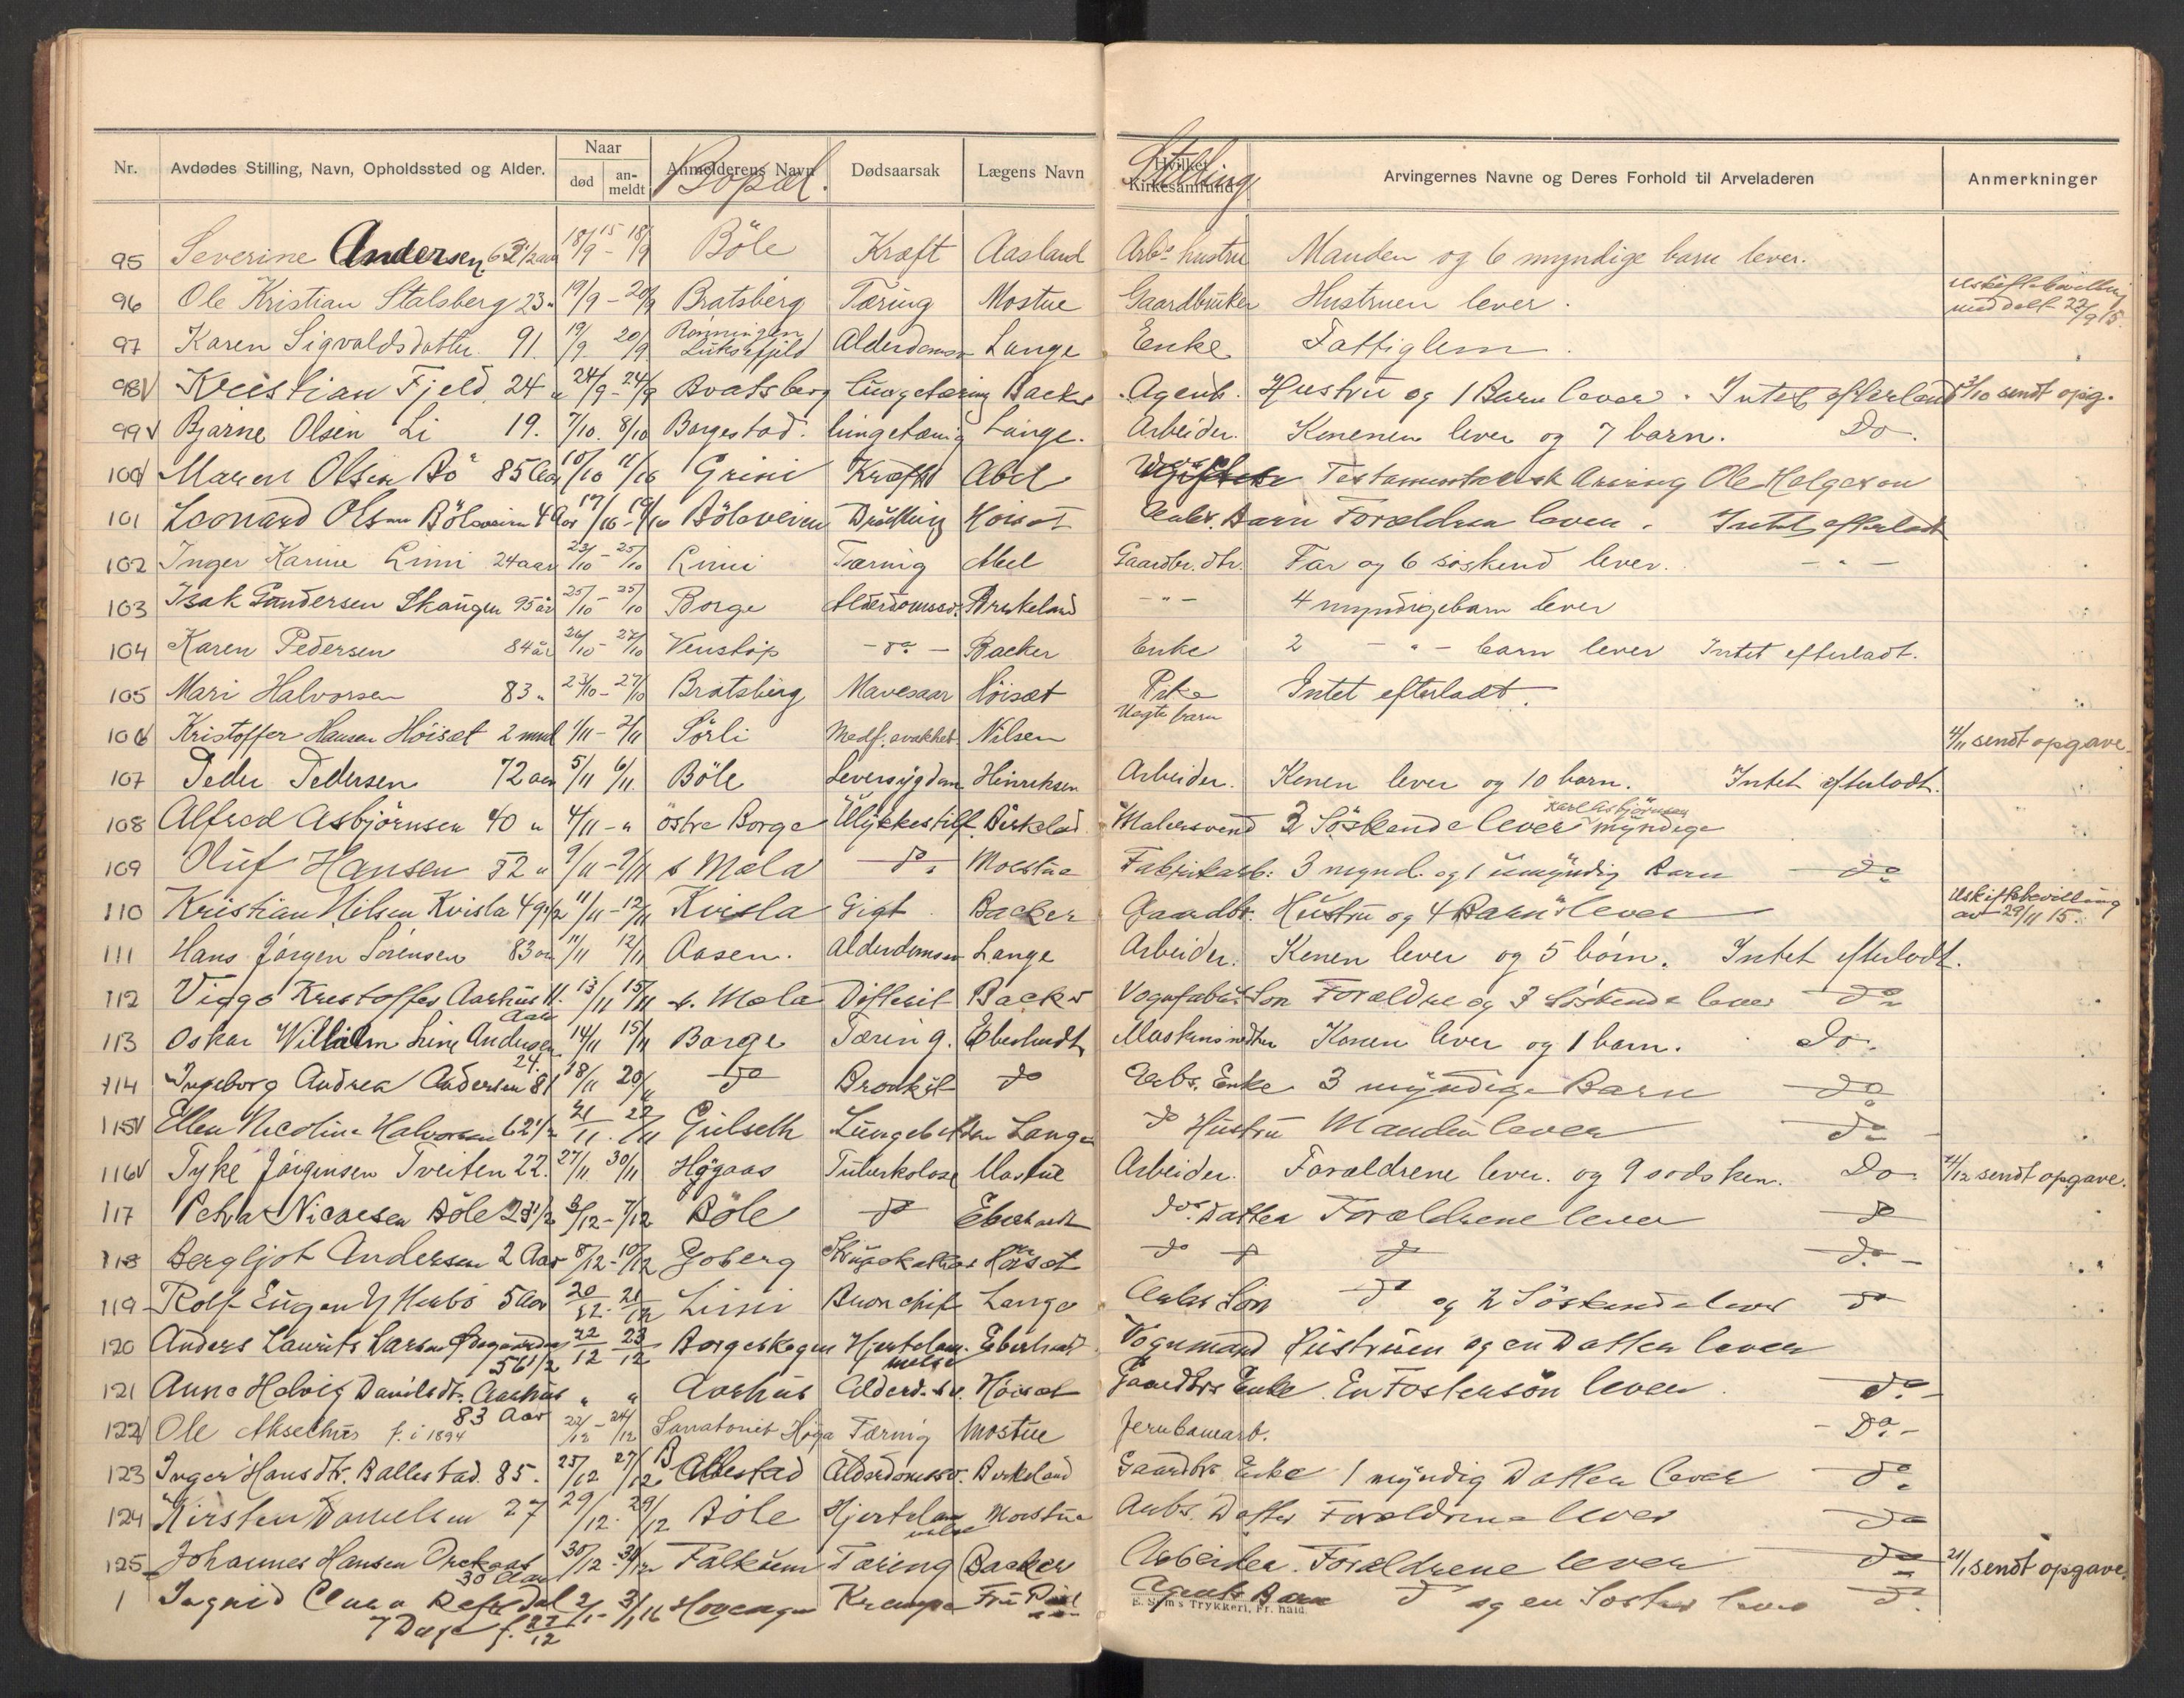 Nr. Avdødes Stilling, Navn, Opholdssted og Alder. Naar død an-meldt Anmelderens Navn Bopæl. Dødsaarsak Lægens Navn Hvilket Kirkesamfund Stilling Arvingernes Navne og Deres Forhold til Arveladeren Anmerkninger
95 Severine Andersen 18/9 15 - 18/9 Böle Kræft Aasland Arbs hustru Manden og 6 myndige barn lever.
96 Ole Kristian Stalsberg 23 " 19/9 - 20/9 Bratsberg Tæring Mostue Gaardbruker Hustruen lever. Uskiftebevilling meddelt 22/9 15.
97 Karen Sigvaldsdatter 91. 19/9 20/9 Rønningen Luksefjeld Alderdomssv Lange Enke Fattiglem.
98 V Kristian Fjeld 24 " 24/9 - 24/9 Bratsberg Lungetæring Backer Agent. Hustru og 1 Barn lever. Intet efterladt 3/10 sendt opg.
99 V Bjarne Olsen Li 19. 7/10. 8/10 Borgestad. lungetæring Lange. Arbeider. Konenen lever og 7 barn. Do.
100 V Maren Olsen Bö 85 Aar 10/10 11/10 Grini Kræft Abel Testamentarisk Arving Ole Helgesen
101 Leonard Olsen Böleveien 4 Aar 17/10 - 19/10 Böleveien Drukning Hoisæt Arbs. Barn Forældrene lever. Intet efterladt
102 Inger Karine Limi 24 aar 23/10 - 25/10 Limi Tæring Abel Gaardbr. dtr. Far og 6 søskend lever. - " -
103 Isak Gundersen Skaugen 95 år 25/10 - 25/10 Borge Alderdomssv. Birkeland - " - 4 myndige barn lever
104 Karen Pedersen 84 år 26/10 - 27/10 Venstøp - do - Backer Enke 2 - " - barn lever Intet efterladt.
105 Mari Halvorsen 83 " 23/10 - 27/10 Bratsberg Mavesaar Höisæt Pike Intet efterladt.
106 V Kristoffer Hansen Höisæt 2 mnd 1/11 - 2/11 Sörli Medf. svakhet. Nilsen Uegte barn 4/11 sendt opgave.
107 Peder Pedersen 72 aar 5/11 6/11 Böle Leversygdom Henriksen Arbeider. Konen lever og 10 barn. Intet efterladt.
108 Alfred Asbjörnsen 40 " 4/11 - " östre Borge Ulykkestilf. Birkelad Malersvend 2 Söskende lever Karl Asbjörnsen myndige
109 Oluf Hansen 52 " 9/11 - 9/11 s Mæla do. Moestue Fabrikarb: 3 mynd. og 1 umyndig Barn do
110 Kristian Nilsen Kvisla 49 1/2 11/11 - 12/11 Kvisla Gigt. Backer Gaardbr. Hustru og 4 Barn lever Uskiftebevilling av 29/11 15.
111 Hans Jörgen Sörensen 83 aar 11/11 12/11 Aasen. Alderdomssv Lange Arbeider. Konen lever og 5 börn. Intet efterladt.
112 Viggo Kristoffer Aarhus 11. Aar 13/11 15/11 s. Mæla Difterit Backer Vognfabr. Son Forældre og 3 Söskende lever do
113 Oskar Wilhelm Andersen 24. 14/11 15/11 Borge Tæring. Eberhardt Konen lever og 1 barn. Do.
114 Ingeborg Andrea Andersen 81 18/11 20/11 do Bronkit do Arbs. Enke 3 myndige Barn do
115 V Ellen Nicoline Halvorsen 62 1/2 21/11. 22/11 Gulseth Lange do Hustru Manden lever do
116 V Tyke Jörgensen Tveiten 22. 27/11 30/11 Högaas Tuberkolose Mostue Arbeider. Forældrene lever. og 9 Do 2/12 sendt opgave.
117 Petra Nicolsen Böle 23 1/2 3/12 - 7/12 Böle do Eberhardt do. Datter Forældrene lever do
118 Bergljot Andersen 2 Aar 8/12 - 10/12 Goberg Höisæt do do do do. -
119 Rolf Eugen 5 Aar 20/12 - 21/12 Limi Bronchit Lange Arbs Son do og 2 Söskende lever do
120 Anders Laurits Larsen 56 1/2 22/12 23/12 Borgeskogen Hjertelammelse Eberhardt Vognmand Hustruen og en Datter lever
121 Anne Helvig Danilsdtr. Aarhus 83 Aar " " Aarhus Alderd. sv. Höisæt Gaardbrs Enke En Fostersön lever. do. -
122 V Ole f. i 1894 22/12 - 24/12 Sanatoriet Tæring Mostue Jernbanearb. - Do. -
123 Inger Hansdtr. Ballestad 85. 25/12 27/12 Ballestad Alderdomssv. Birkeland Gaardbrs Enke 1 myndig Datter lever do
124 Kirsten Danielsen 27 29/12. 29/12 Böle Hjertelammelse Moestue Arbs. Datter Forældrene lever do
125 Johannes Hansen 30 Aar 30/12 - 31/12 Falkum Tæring Backer Arbeider Forældrene lever do 21/1 sendt opgave.
1 Ingrid Clara 7 Dage f. 27/12 2/1 - 3/1 16 Hovenga Krampe Fru Agents Barn do og en Söster lever do
E. Sem's Trykkeri, Fr.hald.